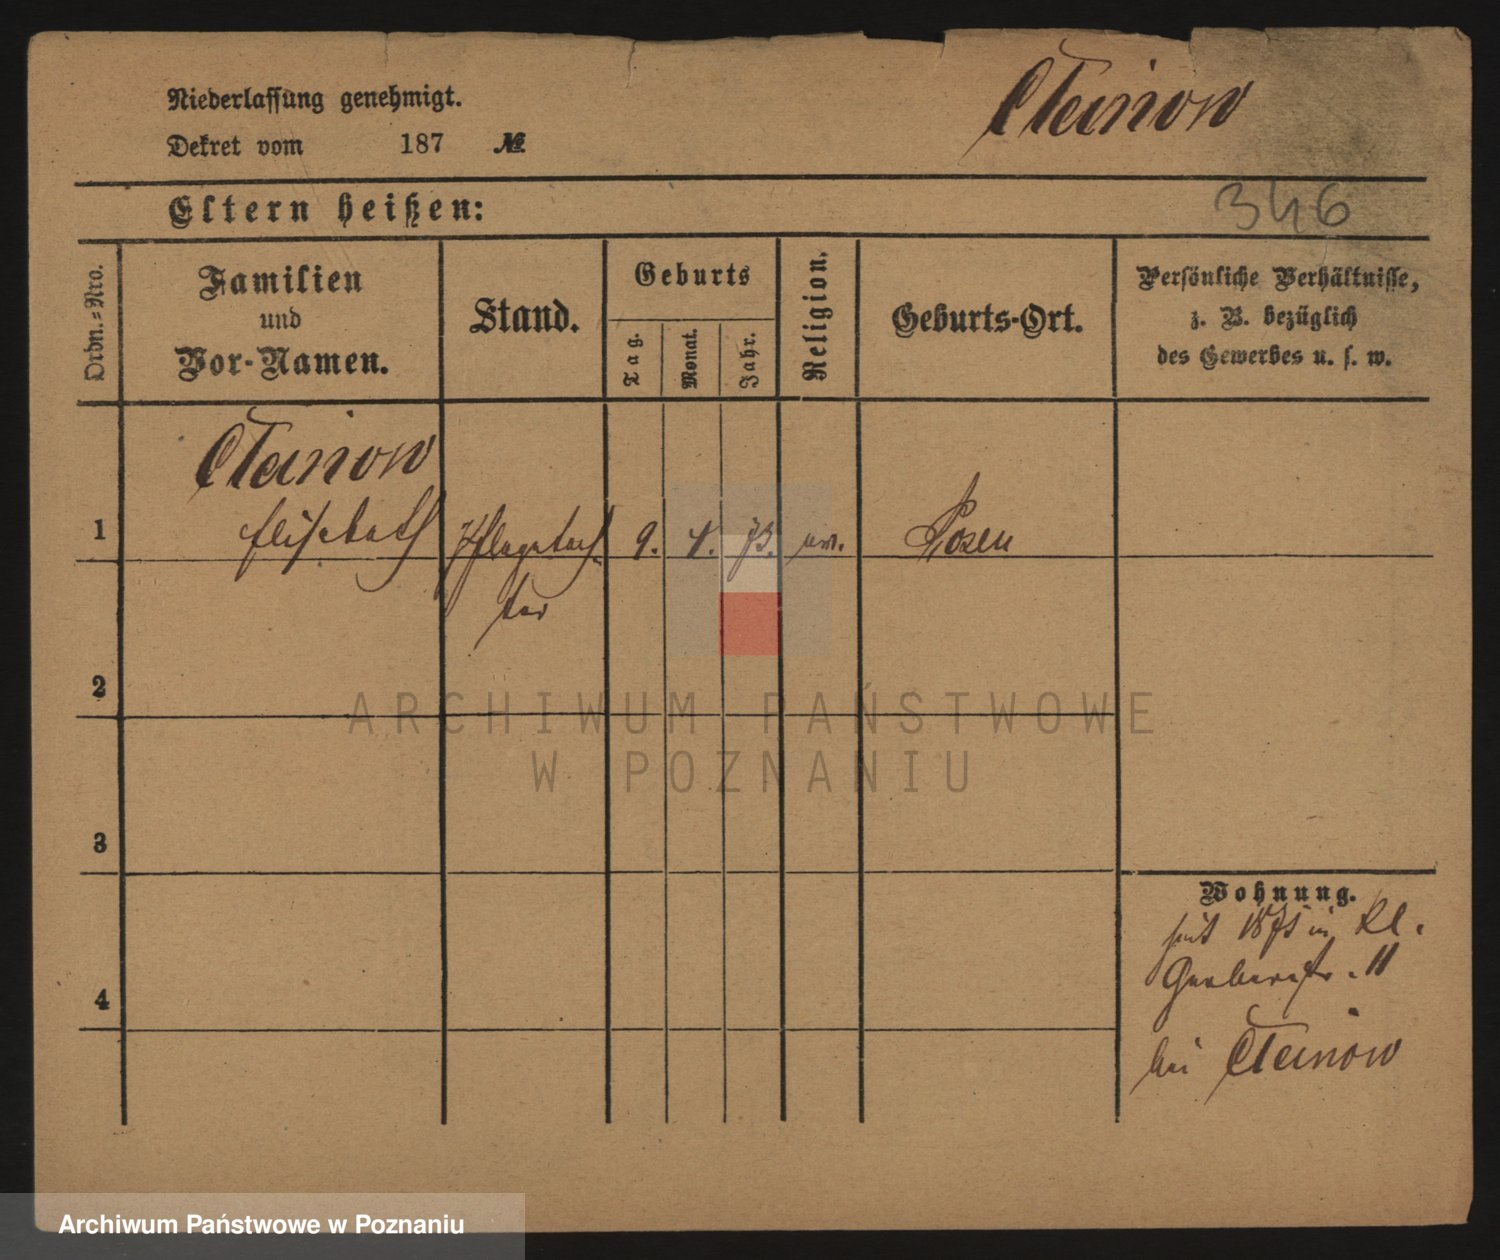 Niederlassung genehmigt.
Dekret vom 187 №
Steinow
346
Eltern heißen:
Ordn.=Nro.
Familien
und
Vor-Namen.
Stand.
Geburts
Tag.
Monat.
Jahr.
Religion.
Geburts-Ort.
Persönliche Verhältnisse,
z. B. bezüglich
des Gewerbes u. s. w.
Steinow
1 Elisabeth Pflegetoch 9. 73. ev. Posen
ter
2
ARCHIWUM PAŃSTWOWE
W POZNANIU
3
Wohnung.
seit in Kl.
Gerberstr. 11
4
bei Steinow
Archiwum Państwowe w Poznaniu